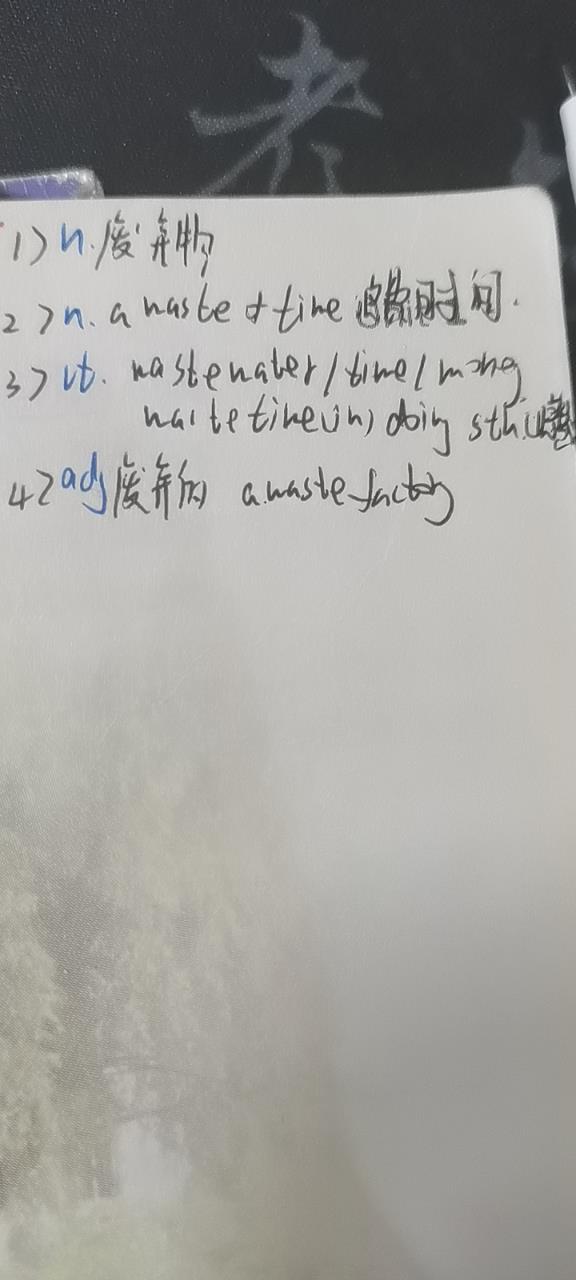 老
1> n. 废弃物
2> n. a waste of time 时间.
3> vt. waste water / time / money
waste time (in) doing sth
4> adj 废弃的 a waste factory